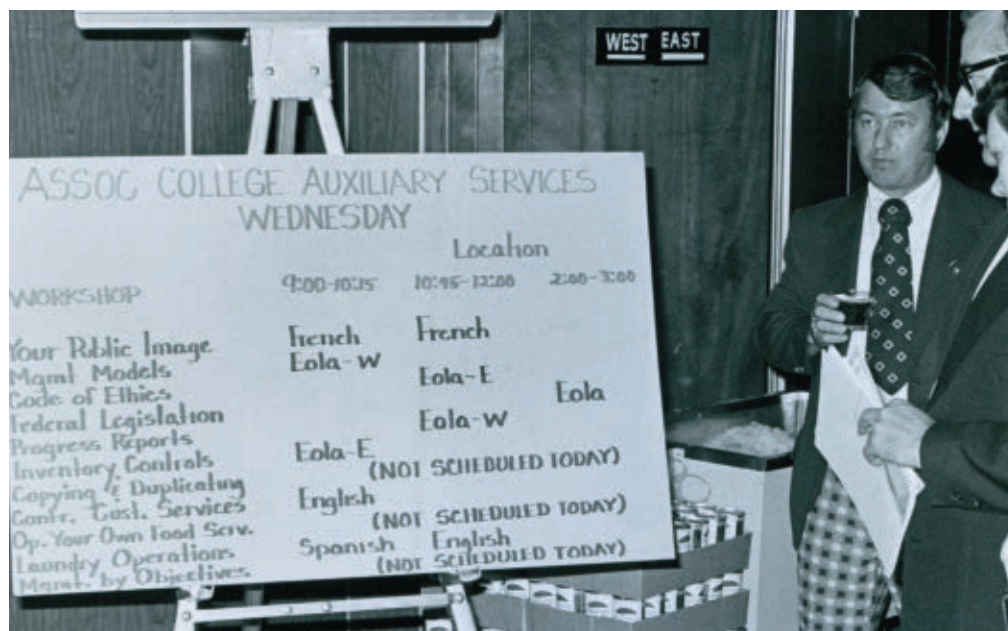 WEST EAST
ASSOC COLLEGE AUXILIARY SERVICES
WEDNESDAY
Location
WORKSHOP 9:00-10:15 10:45-12:00 2:00-3:00
Your Public Image French French
Mgmt Models Eola-W
Code of Ethics Eola-E
Federal Legislation Eola
Progress Reports Eola-W
Inventory Controls Eola-E
Copying & Duplicating (NOT SCHEDULED TODAY)
Contr. Cust. Services English
Op. Your Own Food Serv. (NOT SCHEDULED TODAY)
Laundry Operations Spanish English
Mgmt. by Objectives (NOT SCHEDULED TODAY)